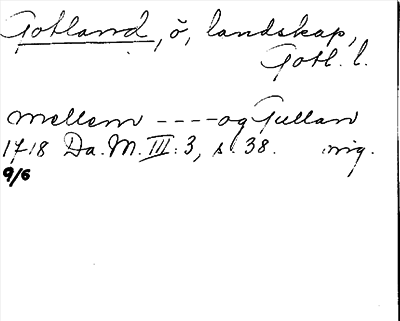 Gotland, ö, landskap,
Gotl. l.
mellem ---- og Gullan
1718 Da. M. III: 3, s. 38. mig.
9/6